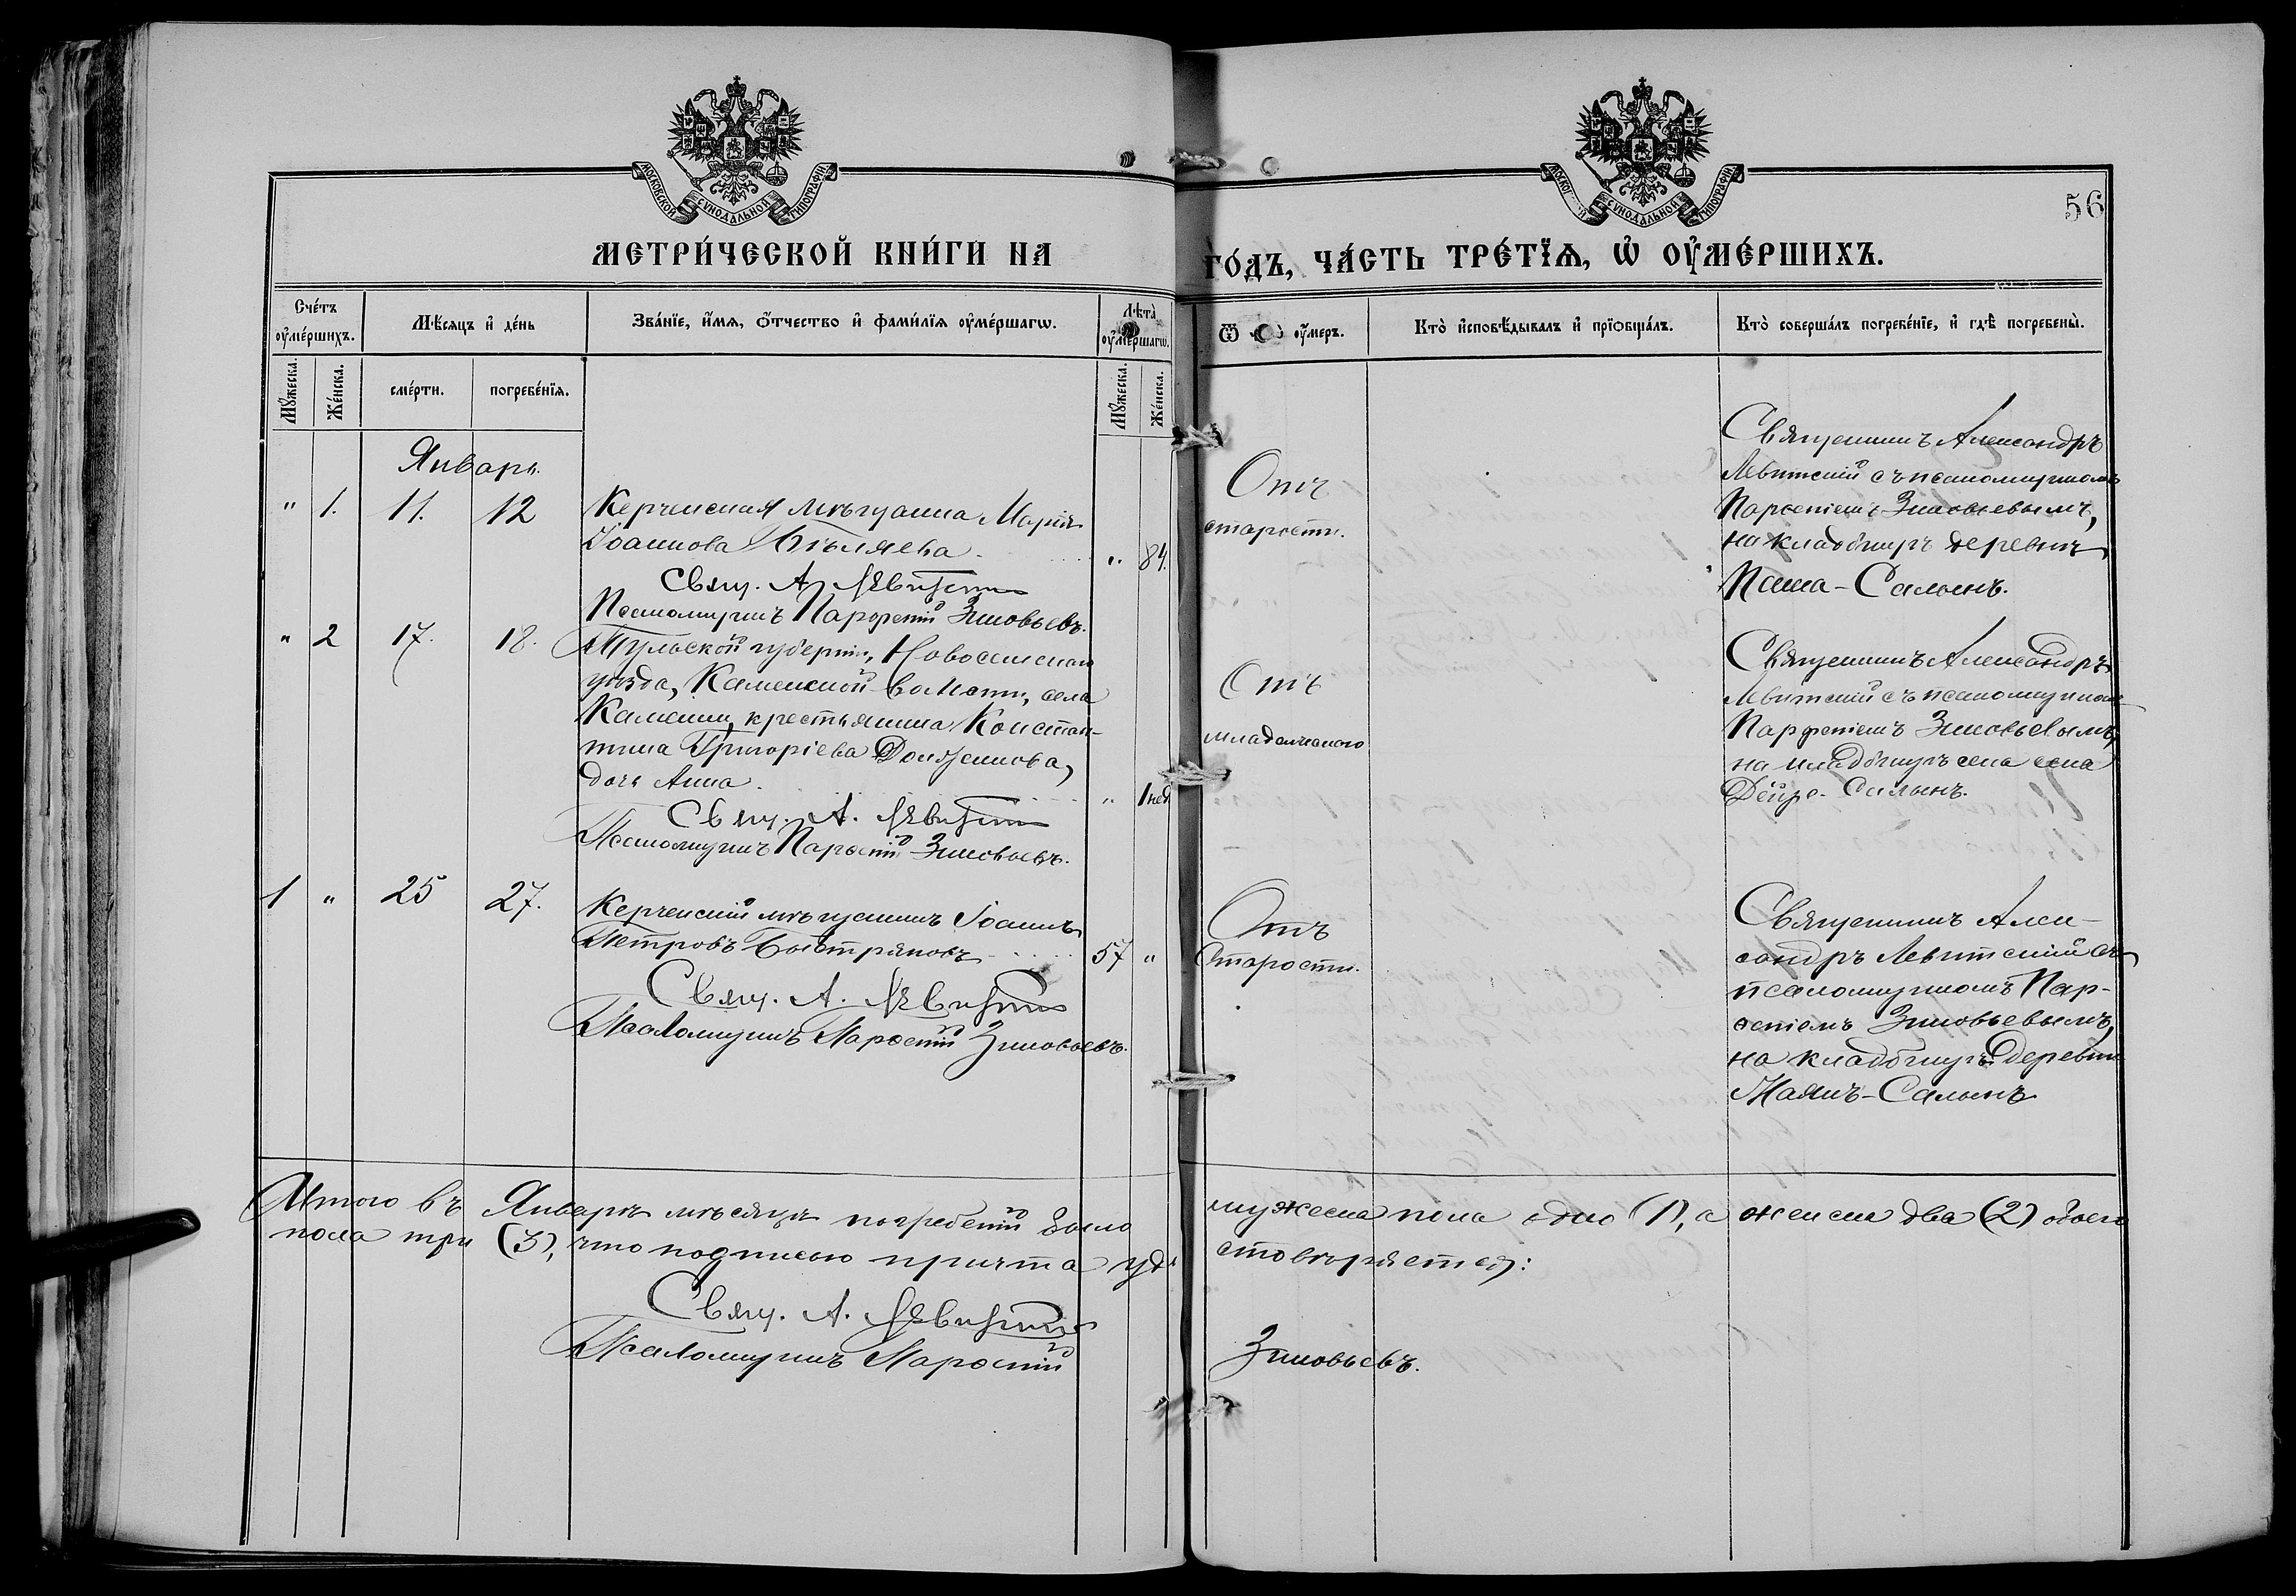 МОСКОВСКОЙ СѴНОДАЛЬНОЙ ТИПОГРАФІИ
МОСКОВСКОЙ СѴНОДАЛЬНОЙ ТИПОГРАФІИ
56
МЕТРИ́ЧЕСКОЙ КНИ́ГИ НА
ГО́ДЪ, ЧА́СТЬ ТРЕ́ТЇѦ, Ѡ҆ ОУ҆МЕ́РШИХЪ.
Сче́тъ оу҆ме́ршихъ.
Мѣ́сѧцъ и҆ де́нь
Зва́нїе, и҆́мѧ, ѻ҆́тчество и҆ фами́лїѧ оу҆ме́ршагѡ.
Лѣ̀та оу҆ме́ршагѡ.
Ѿ чегѡ̀ оу҆́меръ.
Кто̀ и҆сповѣ́дывалъ и҆ прїѡбща́лъ.
Кто̀ соверша́лъ погребе́нїе, и҆ гдѣ̀ погребены̀.
Мꙋ́жеска.
Же́нска.
сме́рти.
погребе́нїѧ.
Мꙋ́жеска.
Же́нска.
Январь.
" 1. 11. 12 Керченская мѣщанка Марія
Іоаннова Бѣляева. " 84.
Свящ. А. Левитскій
Псаломщикъ Парѳеній Зиновьевъ.
Отъ
старости.
Священникъ Александръ
Левитскій съ псаломщикомъ
Парѳеніемъ Зиновьевымъ,
на кладбищѣ деревни
Паша-Салынъ.
" 2 17. 18. Тульской губерніи, Новосильскаго
уѣзда, Каменской волости, села
Каменки, крестьянина Констан-
тина Григоріева
дочь Анна. " 1 нед.
Свящ. А. Левитскій
Псаломщикъ Парѳеній Зиновьевъ.
Отъ
младенческаго
Священникъ Александръ
Левитскій съ псаломщикомъ
Парфеніемъ Зиновьевымъ,
на кладбищѣ села села
Дейре-Салынъ.
1 " 25 27. Керченскій мѣщанинъ Іоаннъ
Петровъ Быстряковъ 57 "
Свящ. А. Левитскій
Псаломщикъ Парѳеній Зиновьевъ.
Отъ
Старости.
Священникъ Алек-
сандръ Левитскій съ
псаломщикомъ Пар-
ѳеніемъ Зиновьевымъ,
на кладбищѣ деревни
Маякъ-Салынъ
Итого въ Январѣ мѣсяцѣ погребеній было мужеска пола одно (1), а женска два (2) обоего
пола три (3), что подписью причта удостовѣряется:
Свящ. А. Левитскій
Псаломщикъ Парѳеній Зиновьевъ.